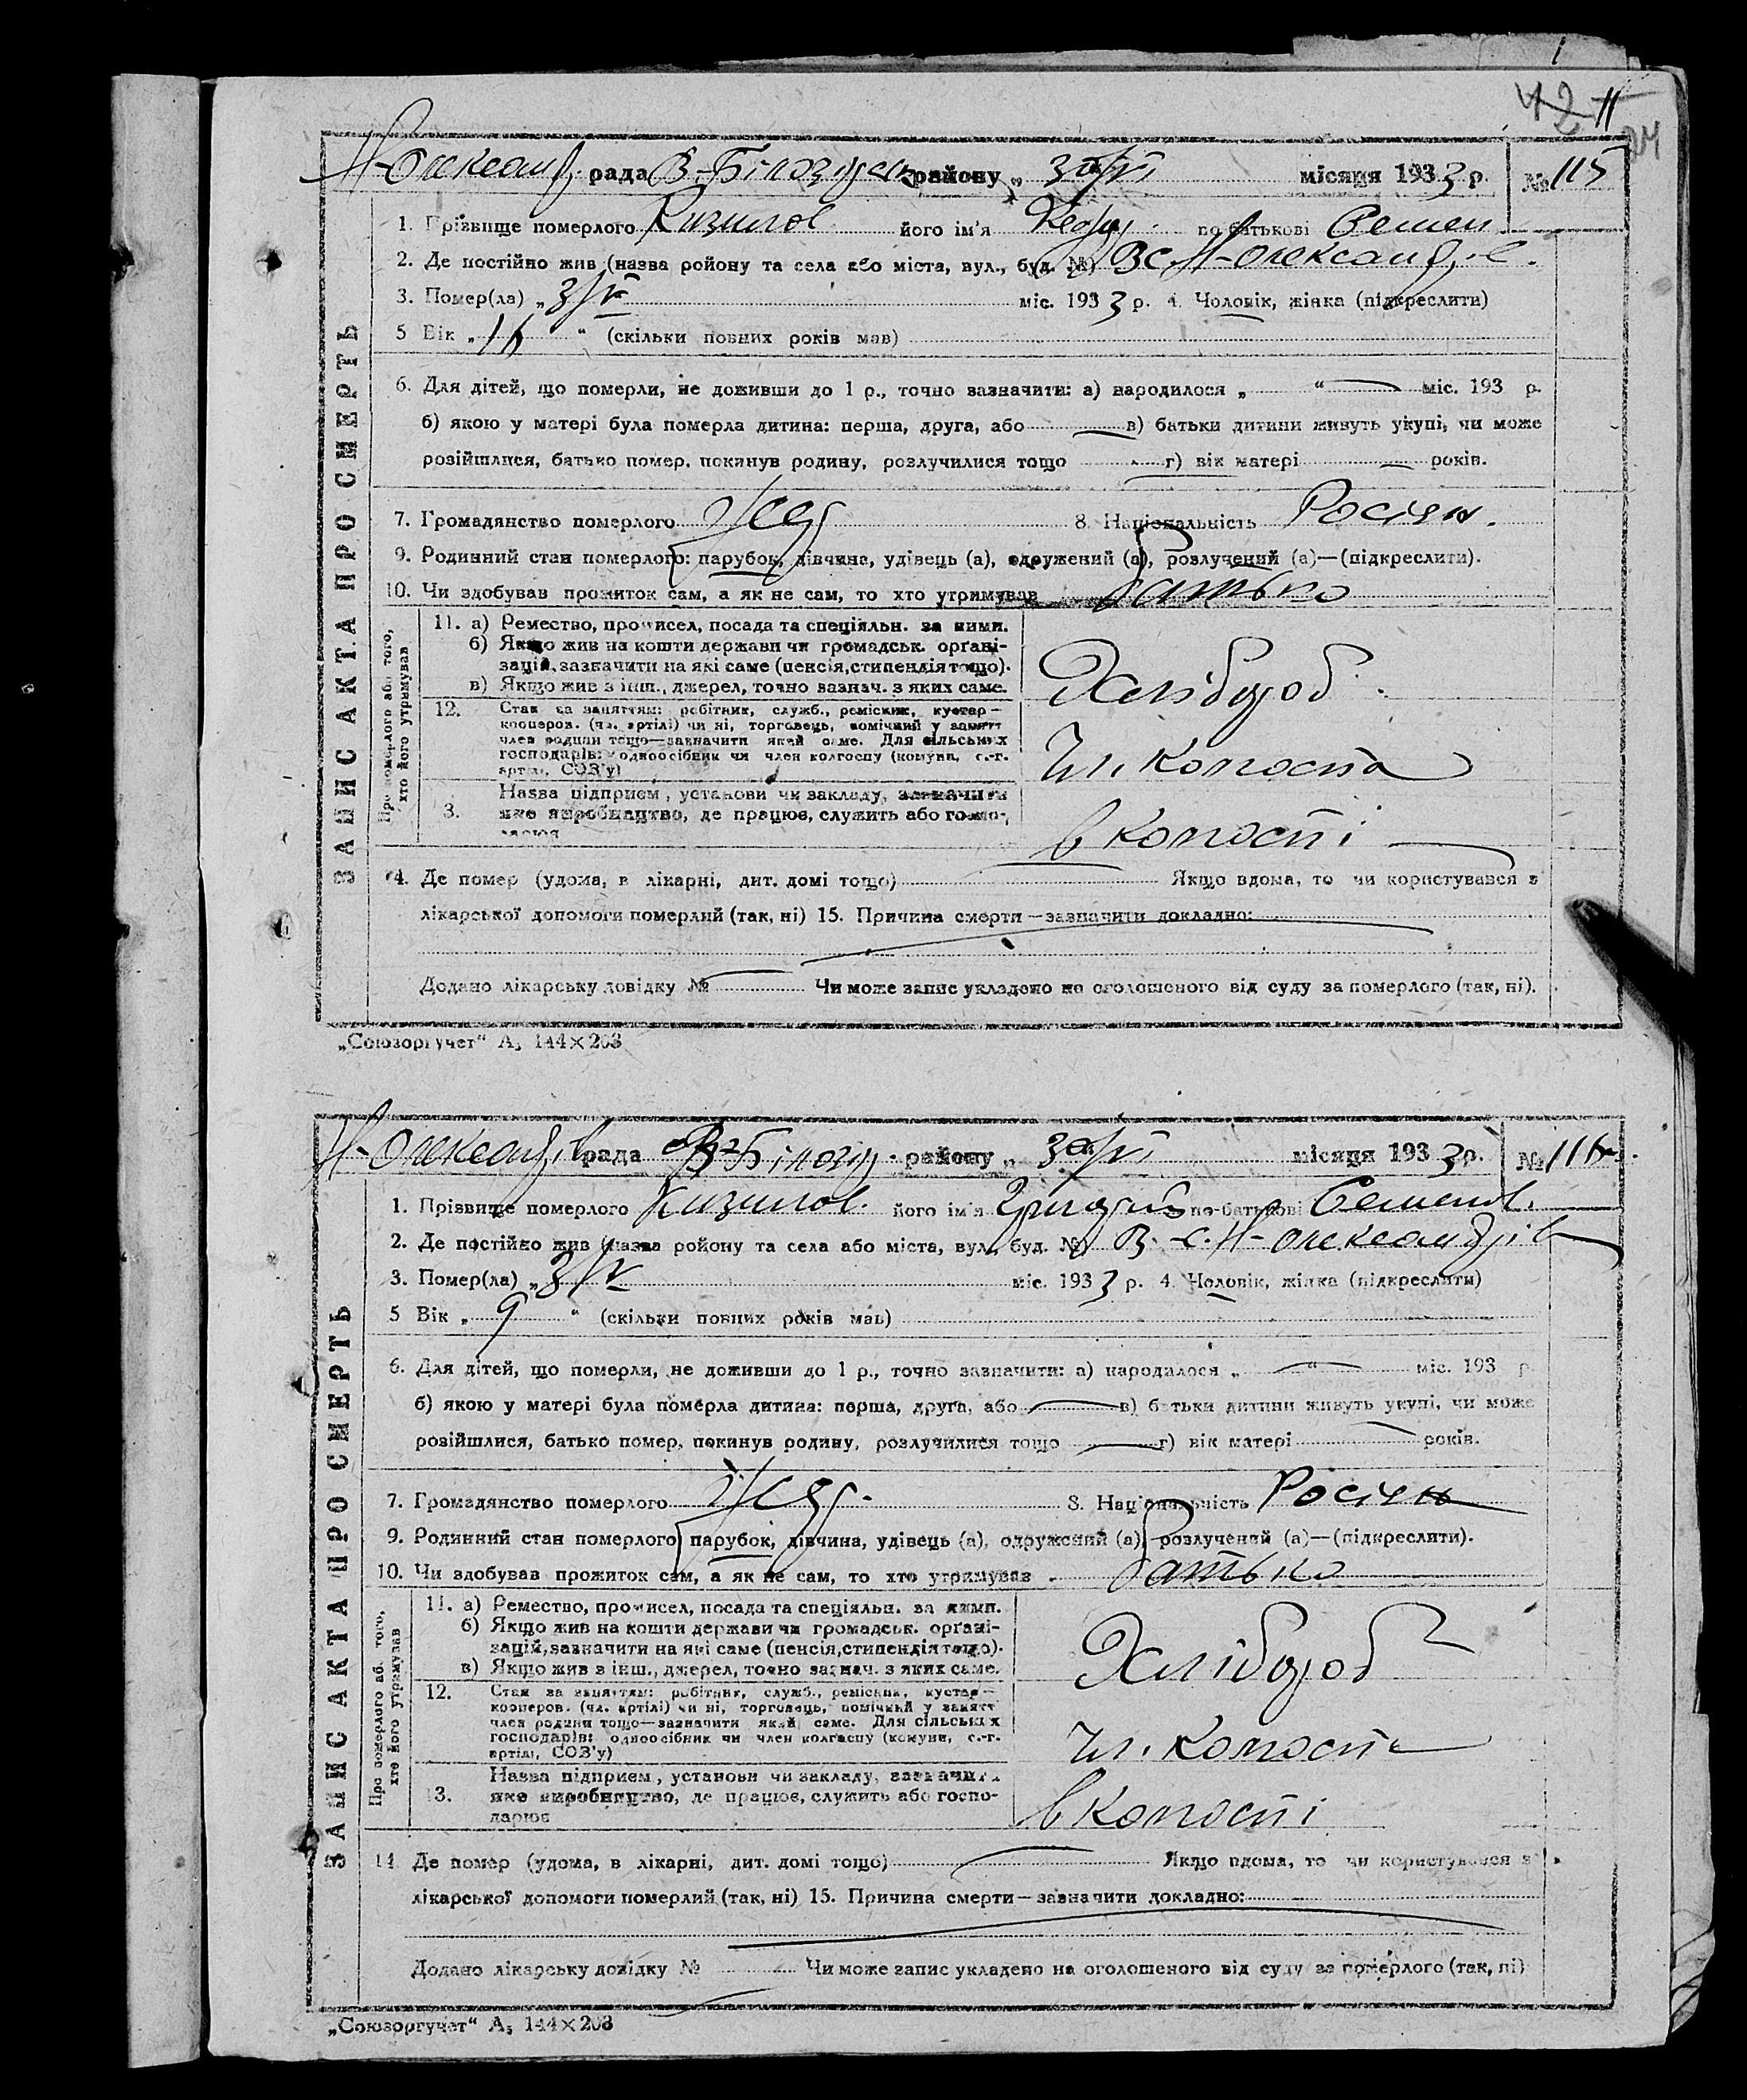 42 11
24
Н-Олександ. рада В-Білозерск району „ 3го/VI місяця 1933 р. № 115
1. Прізвище померлого Кизилов його ім'я по батькові Семен
2. Де постійно жив (назва ройону та села або міста, вул., буд. №) В с. Н-Олександ. в.
3. Помер(ла) „ 3/V міс. 1933 р. 4. Чоловік, жінка (підкреслити)
5 Вік „ “ (скільки повних років мав)
6. Для дітей, що померли, не доживши до 1 р., точно зазначити: а) народилося „ “ міс. 193 р.
б) якою у матері була померла дитина: перша, друга, або в) батьки дитини живуть укупі, чи може
розійшлися, батько помер, покинув родину, розлучилися тощо г) вік матері років.
7. Громадянство померлого 8. Національність Росіян.
9. Родинний стан померлого: парубок, дівчина, удівець (а), одружений (а), розлучений (а)—(підкреслити).
10. Чи здобував прожиток сам, а як не сам, то хто утримував батько
ЗАПИС АКТА ПРО СМЕРТЬ
Про померлого або того,
хто його утримував
11. а) Ремество, промисел, посада та спеціяльн. за ними.
б) Якщо жив на кошти держави чи громадськ. органі-
зацій, зазначити на які саме (пенсія, стипендія тощо).
в) Якщо жив з інш., джерел, точно зазнач. з яких саме.
Хлібороб
12. Стан за заняттям: робітник, служб., реміскик, кустар—
кооперов. (чл. артілі) чи ні, торговець, помічний у занятт
член родини тощо—зазначити який саме. Для сільських
господарів: одноосібник чи член колгоспу (комуни, с.-г.
артілі, СОЗ'у)
Чл. колгоспа
3. Назва підприєм., установи чи закладу, зазначити
яке виробництво, де працює, служить або госпо-
дарює
в колгоспі
14. Де помер (удома, в лікарні, дит. домі тощо) Якщо вдома, то чи користувався з
лікарської допомоги померлий (так, ні) 15. Причина смерти—зазначити докладно:
Додано лікарську довідку № Чи може запис укладено на оголошеного від суду за померлого (так, ні).
„Союзоргучет“ А5 144×203
Н-Олександ.в рада В-Білозер. району „ 3го/VI місяця 1933 р. № 116
1. Прізвище померлого Кизилов. його ім'я Григорий по-батькові Семенов.
2. Де постійно жив (назва ройону та села або міста, вул., буд. № В. с. Н-Олександрів
3. Помер(ла) „ 3/V міс. 1933 р. 4. Чоловік, жінка (підкреслити)
5 Вік „ 9 “ (скільки повних років мав)
6. Для дітей, що померли, не доживши до 1 р., точно зазначити: а) народилося „ “ міс. 193 р.
б) якою у матері була померла дитина: перша, друга, або в) батьки дитини живуть укупі, чи може
розійшлися, батько помер, покинув родину, розлучилися тощо г) вік матері років.
7. Громадянство померлого 8. Національність Росіян
9. Родинний стан померлого парубок, дівчина, удівець (а), одружений (а), розлучений (а)—(підкреслити).
10. Чи здобував прожиток сам, а як не сам, то хто утримував батько
ЗАПИС АКТА ПРО СМЕРТЬ
Про померлого або того,
хто його утримував
11. а) Ремество, промисел, посада та спеціяльн. за ними.
б) Якщо жив на кошти держави чи громадськ. органі-
зацій, зазначити на які саме (пенсія, стипендія тощо).
в) Якщо жив з інш., джерел, точно зазнач. з яких саме.
Хлібороб
12. Стан за заняттям: робітник, служб., реміскик, кустар—
кооперов. (чл. артілі) чи ні, торговець, помічний у занятт
член родини тощо—зазначити який саме. Для сільських
господарів: одноосібник чи член колгоспу (комуни, с.-г.
артілі, СОЗ'у)
Чл. колгоспа
13. Назва підприєм., установи чи закладу, зазначити
яке виробництво, де працює, служить або госпо-
дарює
в колгоспі
14 Де помер (удома, в лікарні, дит. домі тощо) Якщо вдома, то чи користувався з
лікарської допомоги померлий (так, ні) 15. Причина смерти—зазначити докладно:
Додано лікарську довідку № Чи може запис укладено на оголошеного від суду за померлого (так, ні)
„Союзоргучет“ А5 144×203